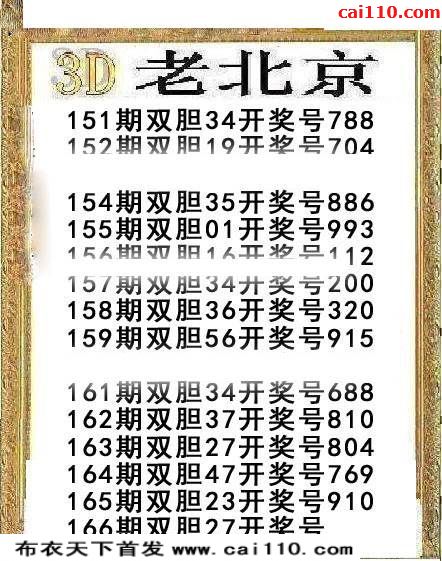 cai110.com
3D 老北京
151期双胆34开奖号788
152期双胆19开奖号704
154期双胆35开奖号886
155期双胆01开奖号993
156期双胆16开奖号112
157期双胆34开奖号200
158期双胆36开奖号320
159期双胆56开奖号915
161期双胆34开奖号688
162期双胆37开奖号810
163期双胆27开奖号804
164期双胆47开奖号769
165期双胆23开奖号910
166期双胆27开奖号
布衣天下首发 www.cai110.com